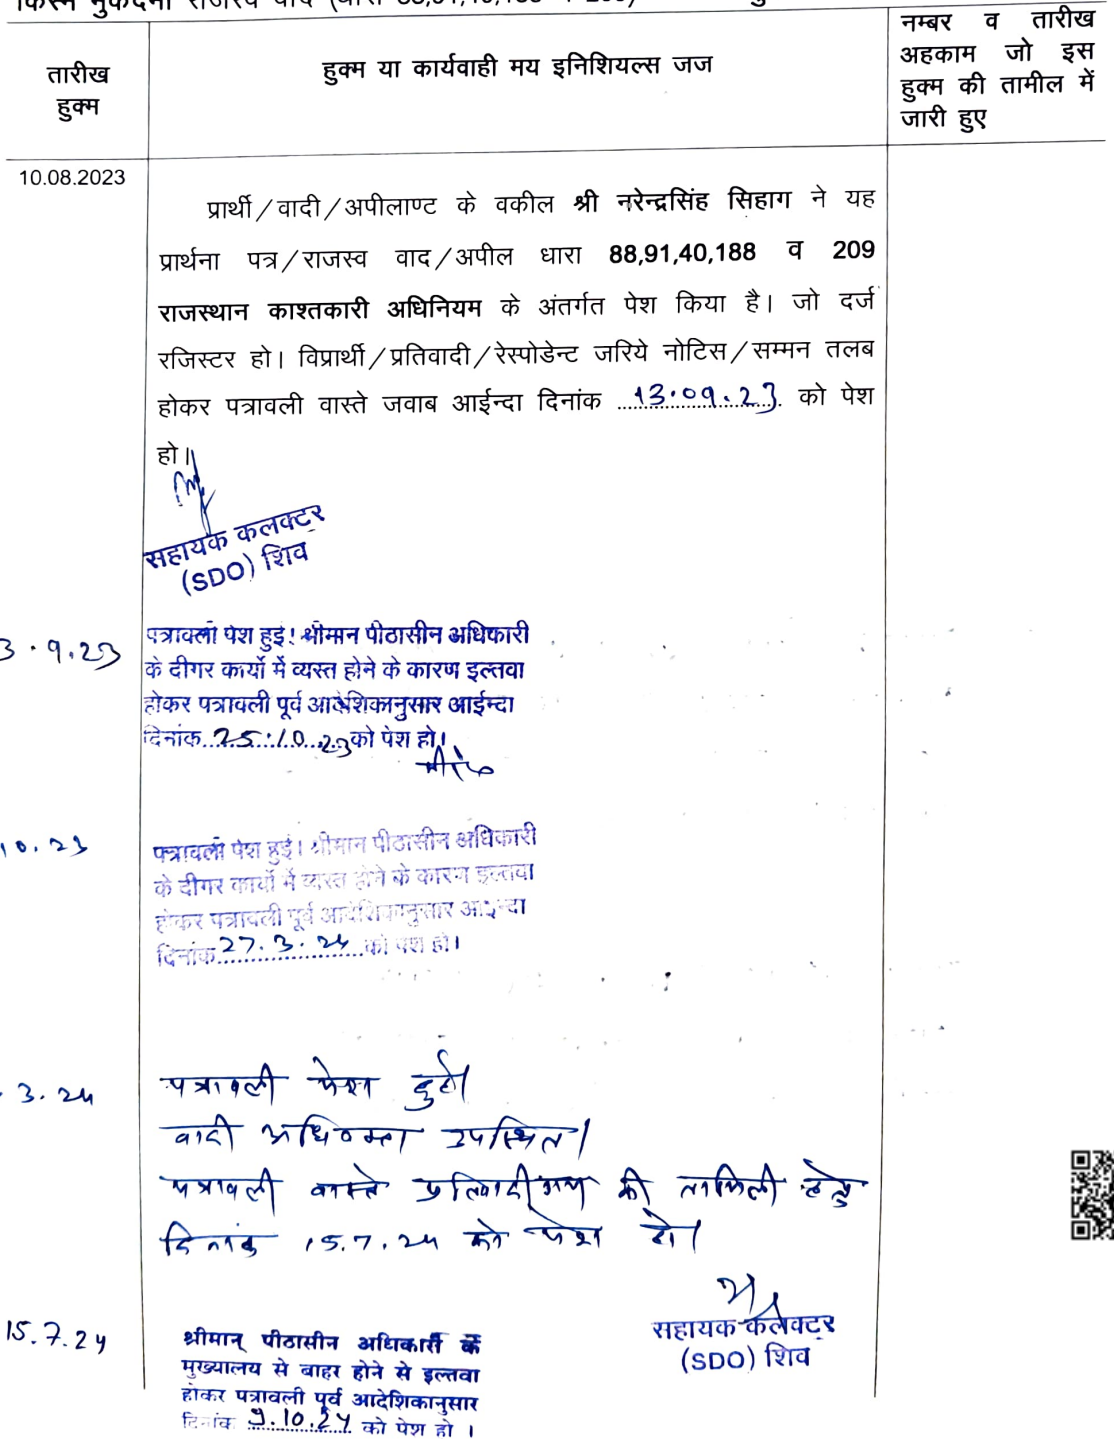 तारीख हुक्म
हुक्म या कार्यवाही मय इनिशियल्स जज
नम्बर व तारीख
अहकाम जो इस
हुक्म की तामील में
जारी हुए
10.08.2023
प्रार्थी/वादी/अपीलाण्ट के वकील श्री नरेन्द्रसिंह सिहाग ने यह
प्रार्थना पत्र/राजस्व वाद/अपील धारा 88,91,40,188 व 209
राजस्थान काश्तकारी अधिनियम के अंतर्गत पेश किया है। जो दर्ज
रजिस्टर हो। विप्रार्थी/प्रतिवादी/रेस्पोडेन्ट जरिये नोटिस/सम्मन तलब
होकर पत्रावली वास्ते जवाब आईन्दा दिनांक 13.09.23 को पेश
हो।
सहायक कलक्टर
(SDO) शिव
3.9.23
पत्रावली पेश हुई! श्रीमान पीठासीन अधिकारी
के दीगर कार्यो में व्यस्त होने के कारण इल्तवा
होकर पत्रावली पूर्व आदेशिकानुसार आईन्दा
दिनांक 25.10.23 को पेश हो।
10.23
पत्रावली पेश हुई। श्रीमान पीठासीन अधिकारी
के दीगर कार्यो में व्यस्त होने के कारण इल्तवा
होकर पत्रावली पूर्व आदेशिकानुसार आईन्दा
दिनांक 27.3.24 को पेश हो।
3.24
पत्रावली पेश हुई।
वादी अधिवक्ता उपस्थित।
पत्रावली वास्ते प्रतिवादीगण की तामिली हेतु
दिनांक 15.7.24 को पेश हो।
सहायक कलक्टर
(SDO) शिव
15.7.24
श्रीमान् पीठासीन अधिकारी के
मुख्यालय से बाहर होने से इल्तवा
होकर पत्रावली पूर्व आदेशिकानुसार
दिनांक 9.10.24 को पेश हो ।